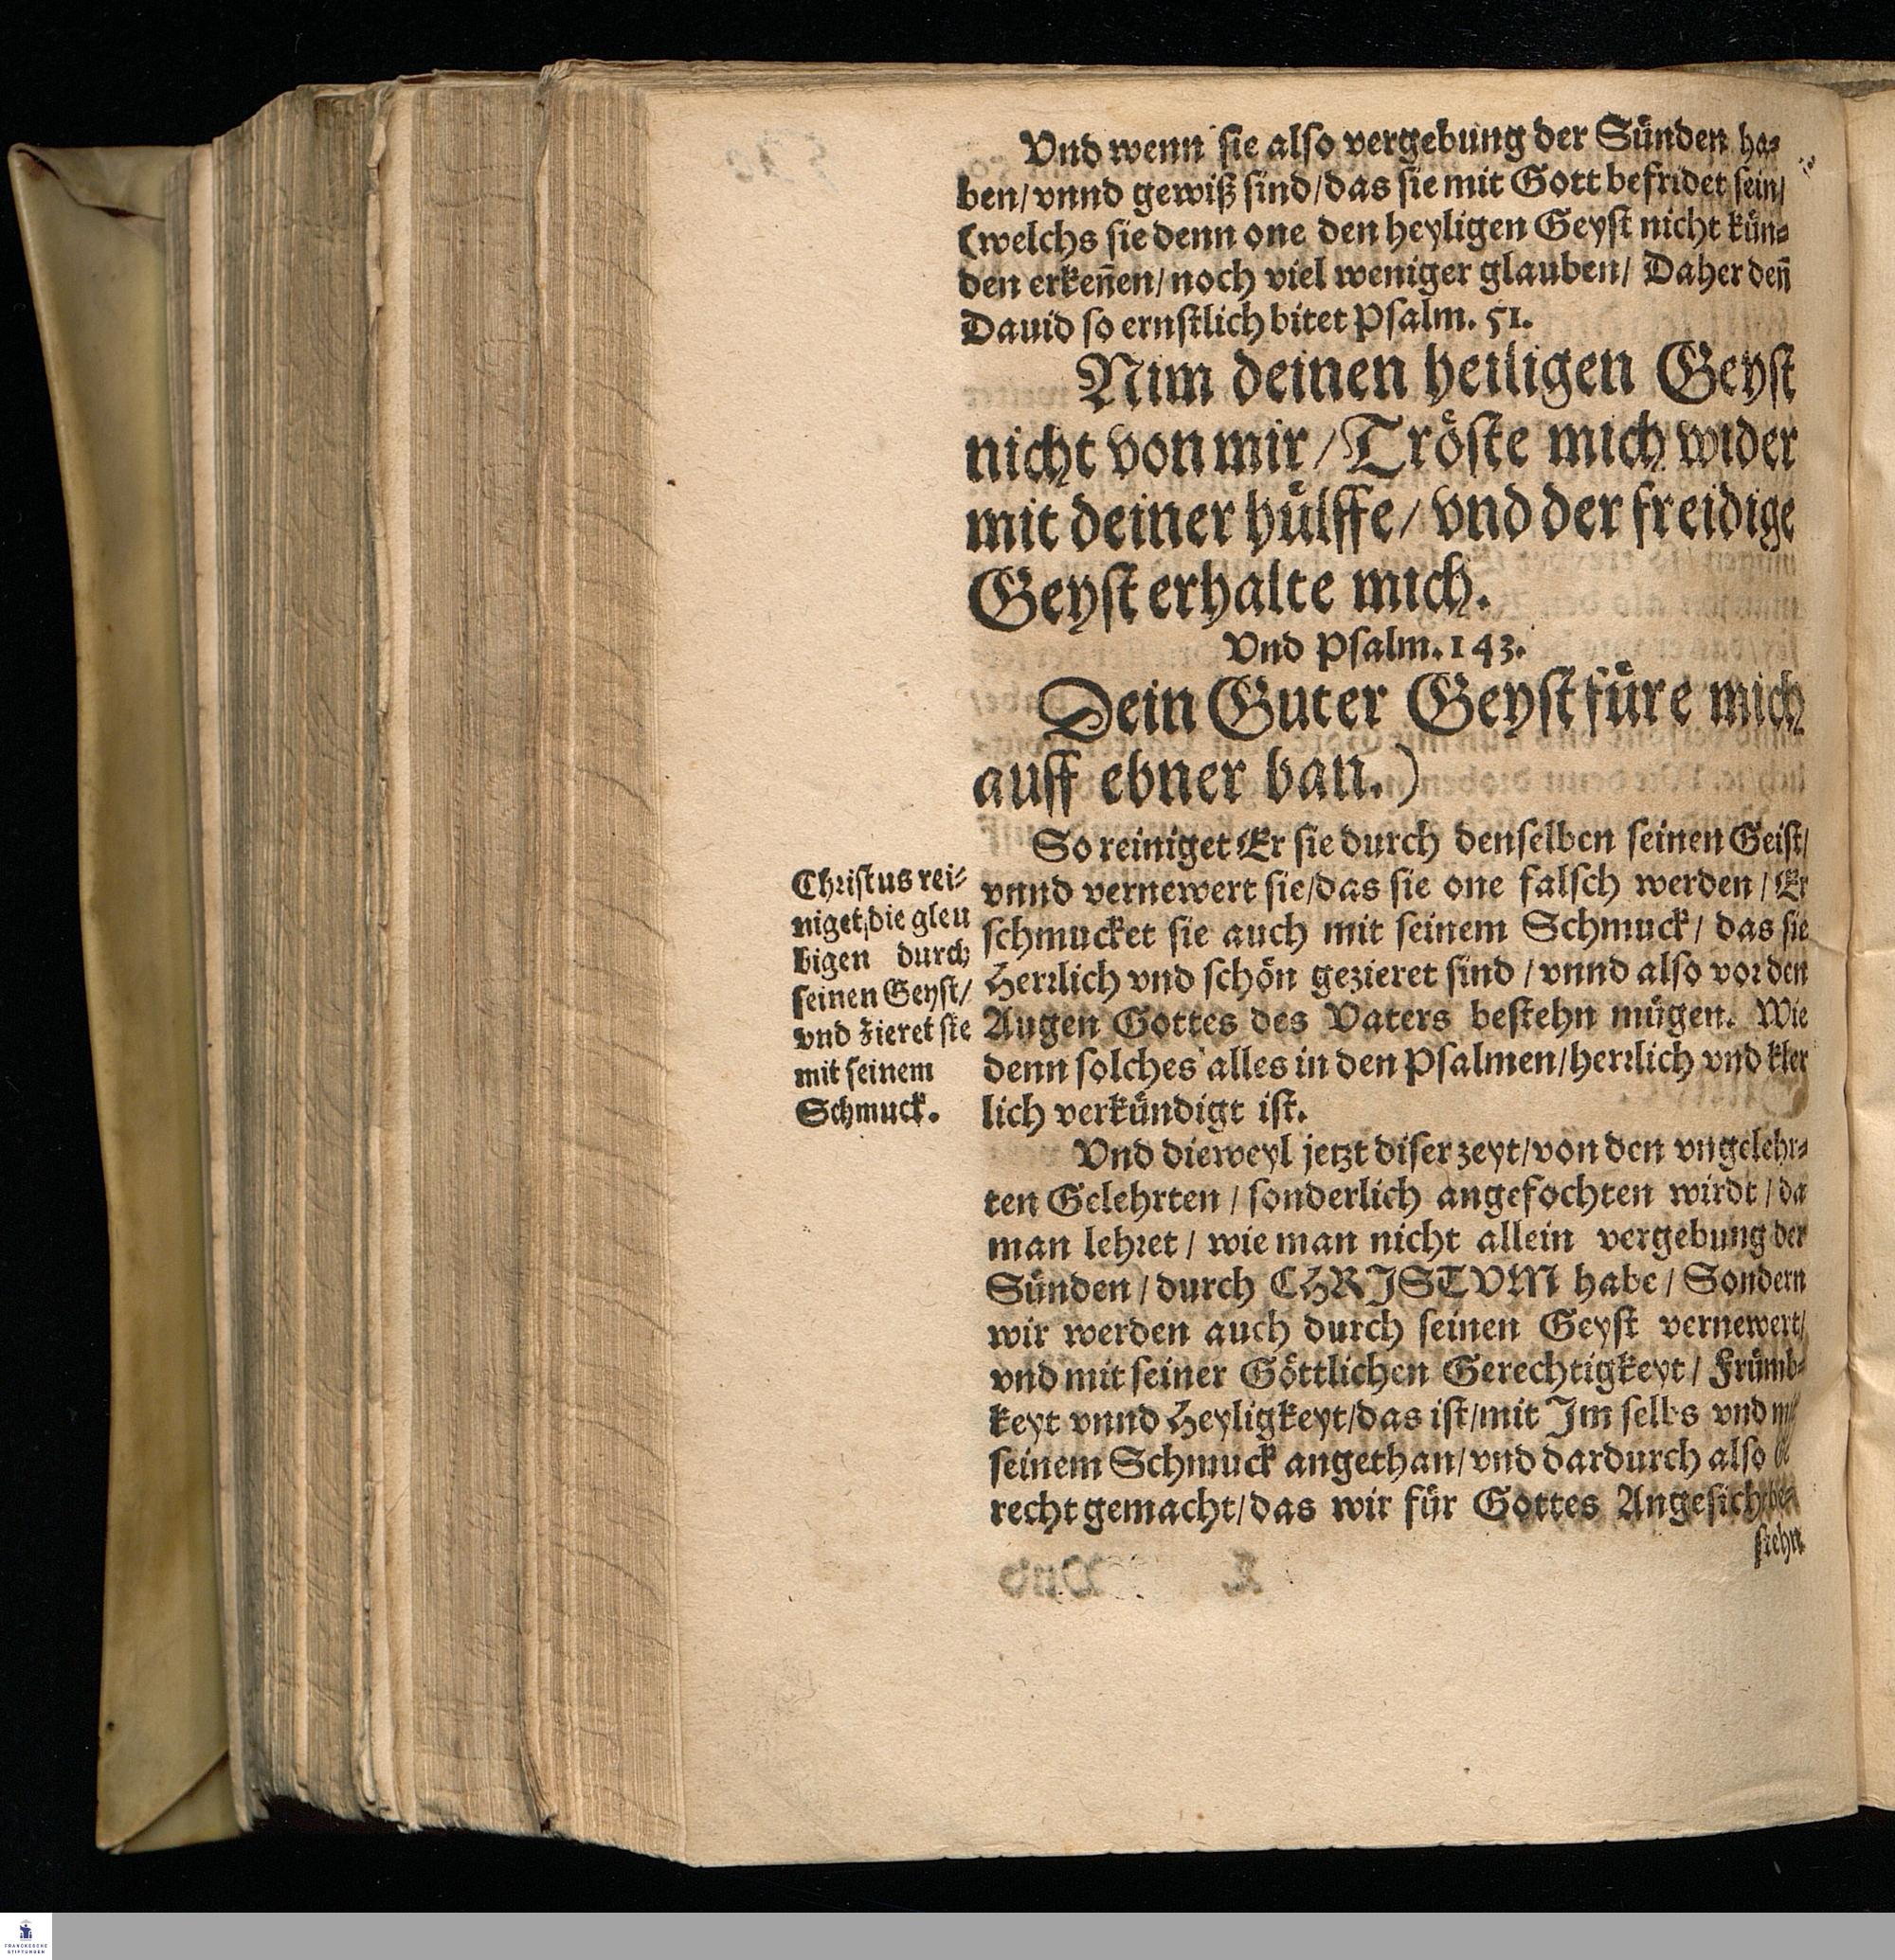 Vnd wenn sie also vergebung der Sünden ha-
ben/ vnnd gewiß sind/ das sie mit Gott befridet sein/
(welchs sie denn one den heyligen Geyst nicht kün-
den erkeñen/ noch viel weniger glauben/ Daher deñ
Dauid so ernstlich bitet Psalm. 51.
Nim deinen heiligen Geyst
nicht von mir/ Tröste mich wider
mit deiner hülffe/ vnd der freidige
Geyst erhalte mich.
Vnd Psalm. 143.
Dein Guter Geyst füre mich
auff ebner ban.)
So reiniget Er sie durch denselben seinen Geist/
vnnd vernewert sie/ das sie one falsch werden/ Er
schmucket sie auch mit seinem Schmuck/ das sie
Herrlich vnd schön gezieret sind/ vnnd also vor den
Augen Gottes des Vaters bestehn mügen. Wie
denn solches alles in den Psalmen/ herrlich vnd kler
lich verkündigt ist.
Christus rei-
niget, die gleu
bigen durch
seinen Geyst/
vnd zieret sie
mit seinem
Schmuck.
Vnd dieweyl jetzt diser zeyt/ von den vngelehr-
ten Gelehrten/ sonderlich angefochten wirdt/ da
man lehret/ wie man nicht allein vergebung der
Sünden/ durch CHRISTVM habe/ Sondern
wir werden auch durch seinen Geyst vernewert/
vnd mit seiner Göttlichen Gerechtigkeyt/ Frümb-
keyt vnnd Heyligkeyt/ das ist/ mit Im selbs vnd
seinem Schmuck angethan/ vnd dardurch also
recht gemacht/ das wir für Gottes Angesicht be-
stehn
FRANCKESCHE
STIFTUNGEN